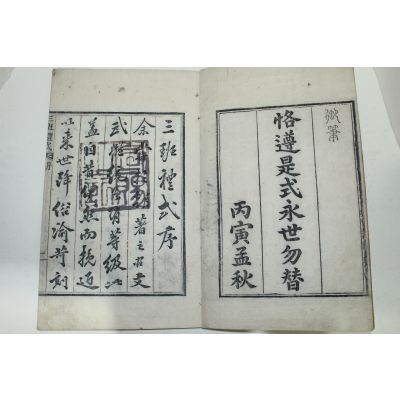 御筆
恪遵是式永世勿替
丙寅孟秋
三班禮式序
余著之文
武等級以
盖自昔然而挽近
以來世降俗渝苛刻
三班禮式